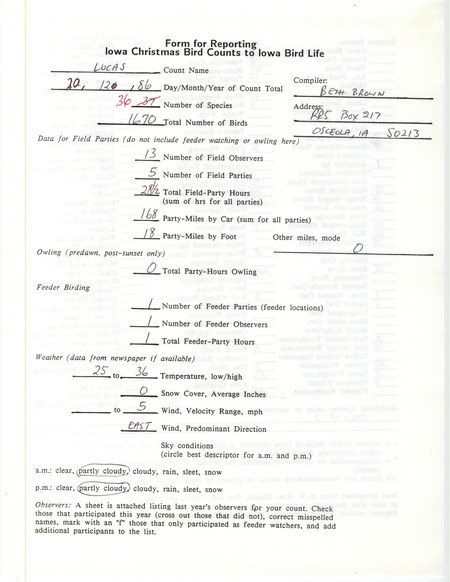 Form for Reporting
Iowa Christmas Bird Counts to Iowa Bird Life
LUCAS Count Name
20, 12, 86 Day/Month/Year of Count Total
Compiler:
BETH BROWN
36 37 Number of Species
Address:
RR5 Box 217
1670 Total Number of Birds
OSCEOLA, IA 50213
Data for Field Parties (do not include feeder watching or owling here)
13 Number of Field Observers
5 Number of Field Parties
28½ Total Field-Party Hours
(sum of hrs for all parties)
168 Party-Miles by Car (sum for all parties)
18 Party-Miles by Foot Other miles, mode 0
Owling (predawn, post-sunset only)
0 Total Party-Hours Owling
Feeder Birding
1 Number of Feeder Parties (feeder locations)
1 Number of Feeder Observers
1 Total Feeder-Party Hours
Weather (data from newspaper if available)
25 to 36 Temperature, low/high
0 Snow Cover, Average Inches
to 5 Wind, Velocity Range, mph
EAST Wind, Predominant Direction
Sky conditions
(circle best descriptor for a.m. and p.m.)
a.m.: clear, partly cloudy, cloudy, rain, sleet, snow
p.m.: clear, partly cloudy, cloudy, rain, sleet, snow
Observers: A sheet is attached listing last year's observers for your count. Check
those that participated this year (cross out those that did not), correct misspelled
names, mark with an "f" those that only participated as feeder watchers, and add
additional participants to the list.